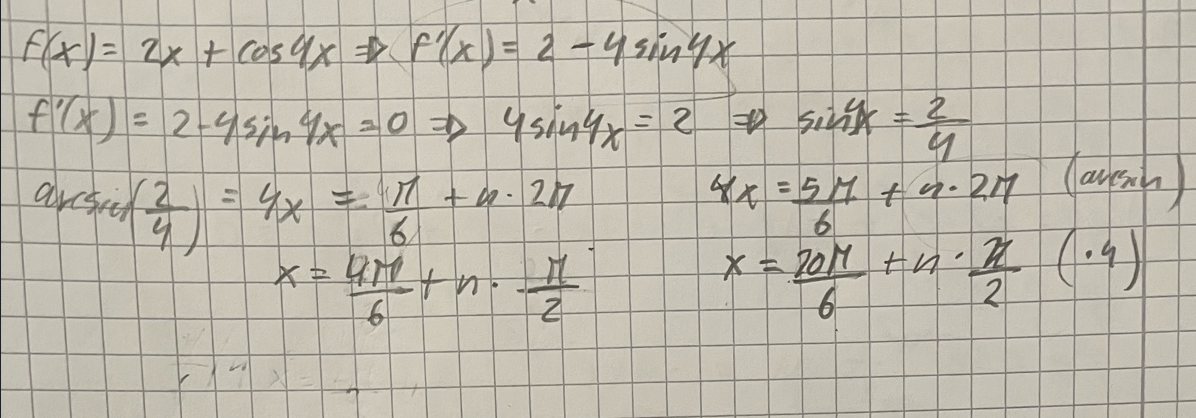 f(x) = 2x + cos4x ⇒ f'(x) = 2 - 4sin4x
f'(x) = 2-4sin4x = 0 ⇒ 4sin4x = 2 ⇒ sin4x = 2/4
arcsin(2/4) = 4x = π/6 + n·2π 4x = 5π/6 + n·2π (arcsin)
x = 4π/6 + n·π/2 x = 20π/6 + n·π/2 (·4)